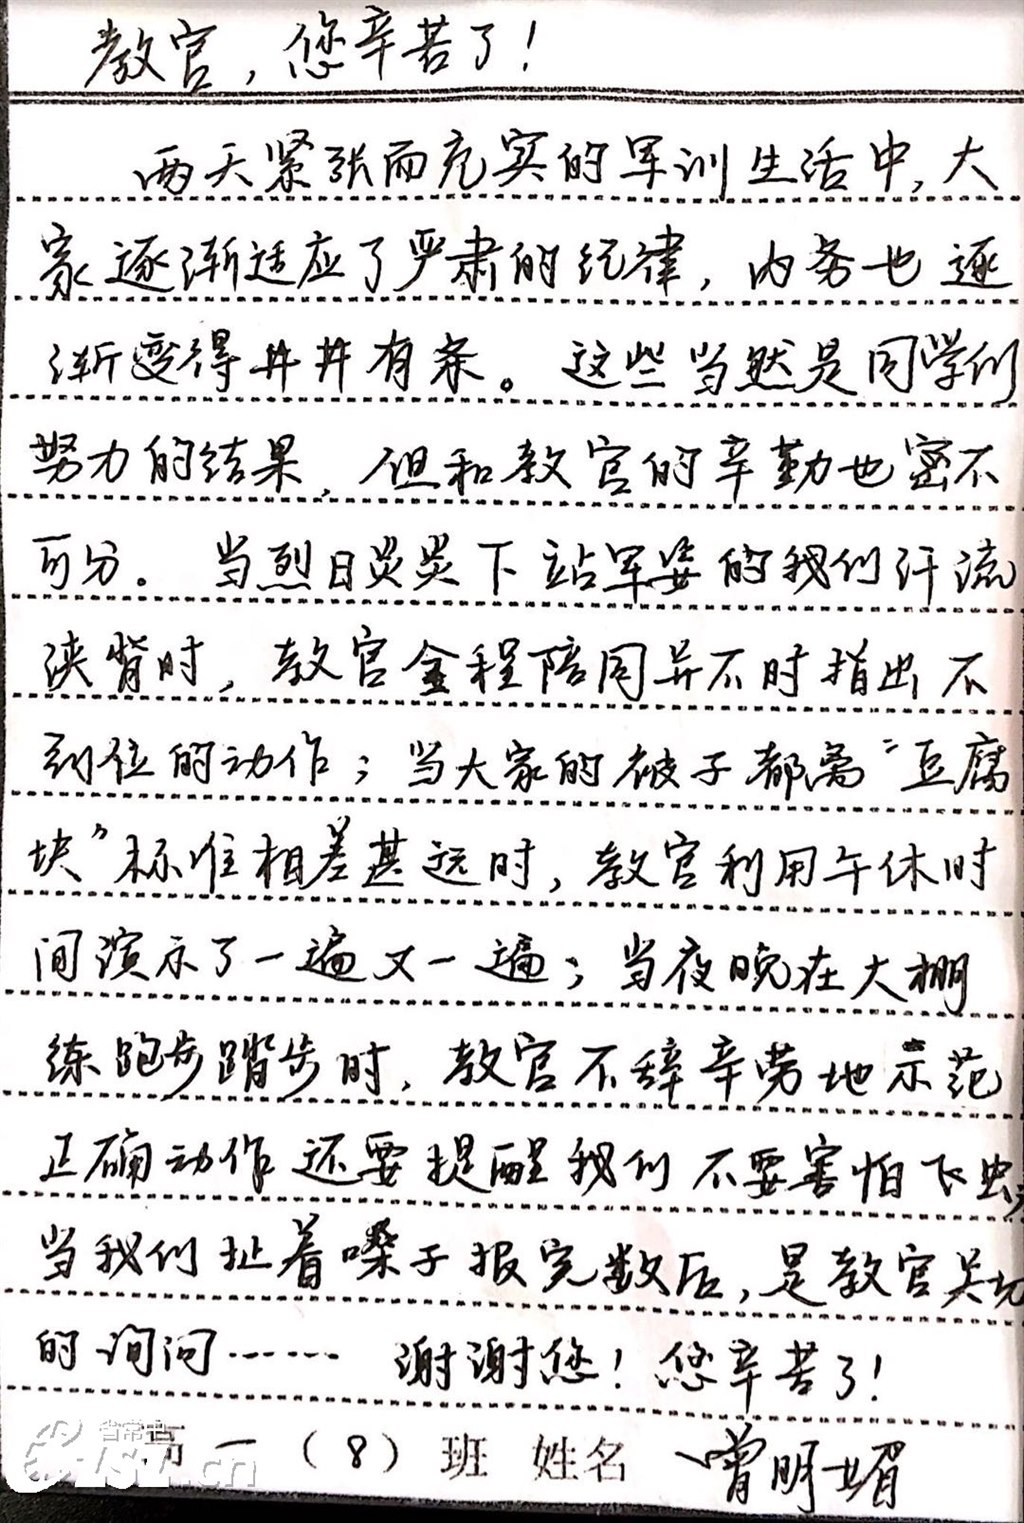 教官，您辛苦了！
两天紧张而充实的军训生活中，大
家逐渐适应了严肃的纪律，内务也逐
渐变得井井有条。这些当然是同学们
努力的结果，但和教官的辛勤也密不
可分。当烈日炎炎下站军姿的我们汗流
浃背时，教官全程陪同并不时指出不
到位的动作；当大家的被子都离“豆腐
块”标准相差甚远时，教官利用午休时
间演示了一遍又一遍；当夜晚在大棚
练跑步踏步时，教官不辞辛劳地示范
正确动作还要提醒我们不要害怕飞虫
当我们扯着嗓子报完数后，是教官关切
的询问……谢谢您！您辛苦了！
高一（8）班 姓名 曾明媚
省常中